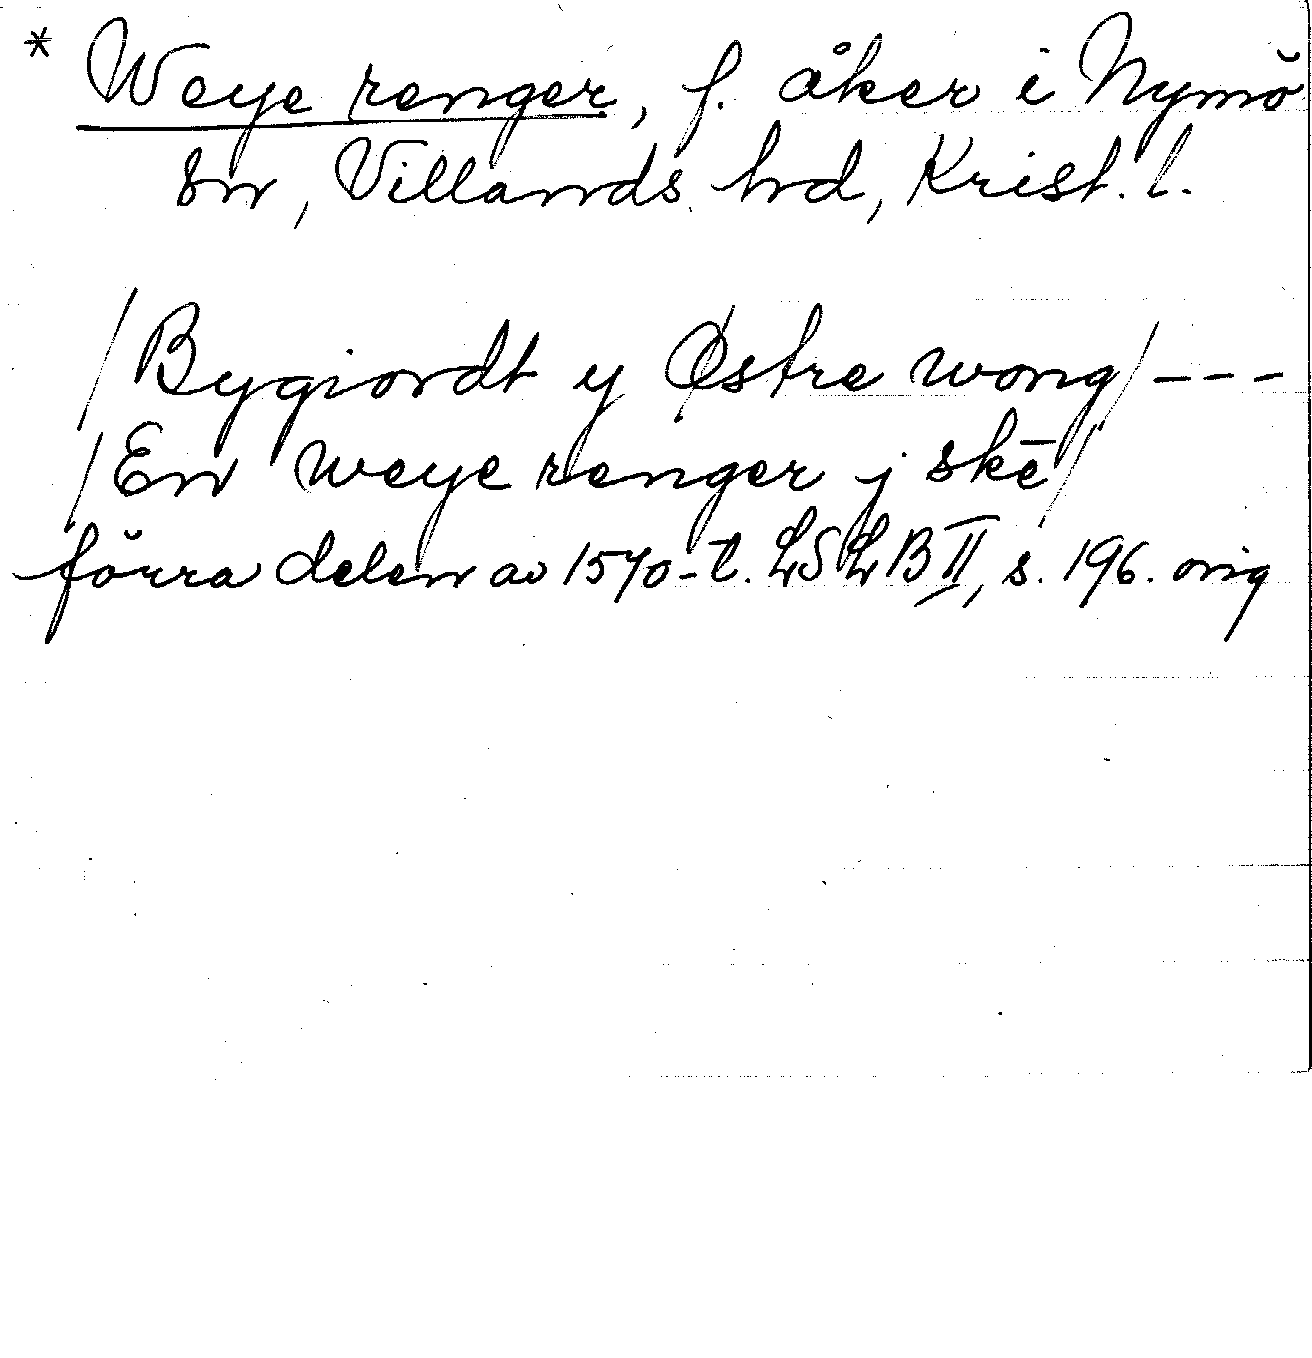 * Weye renger, f. åker i Nymö
sn, Villands hd, Krist. l.
/Bygiordt y Østre wong/ - - -
/En weye renger j skē/
förra delen av 1570-t. LSLB II, s. 196. orig